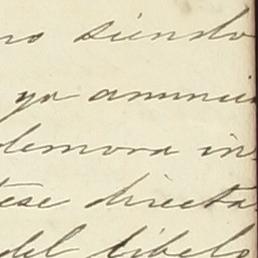 no siendo
ya anunci
demora in
tese directa
del libelo